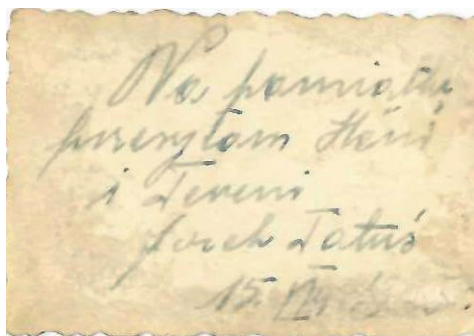 Na pamiątkę
przesyłam Heni
i Tereni
Tatuś
15.